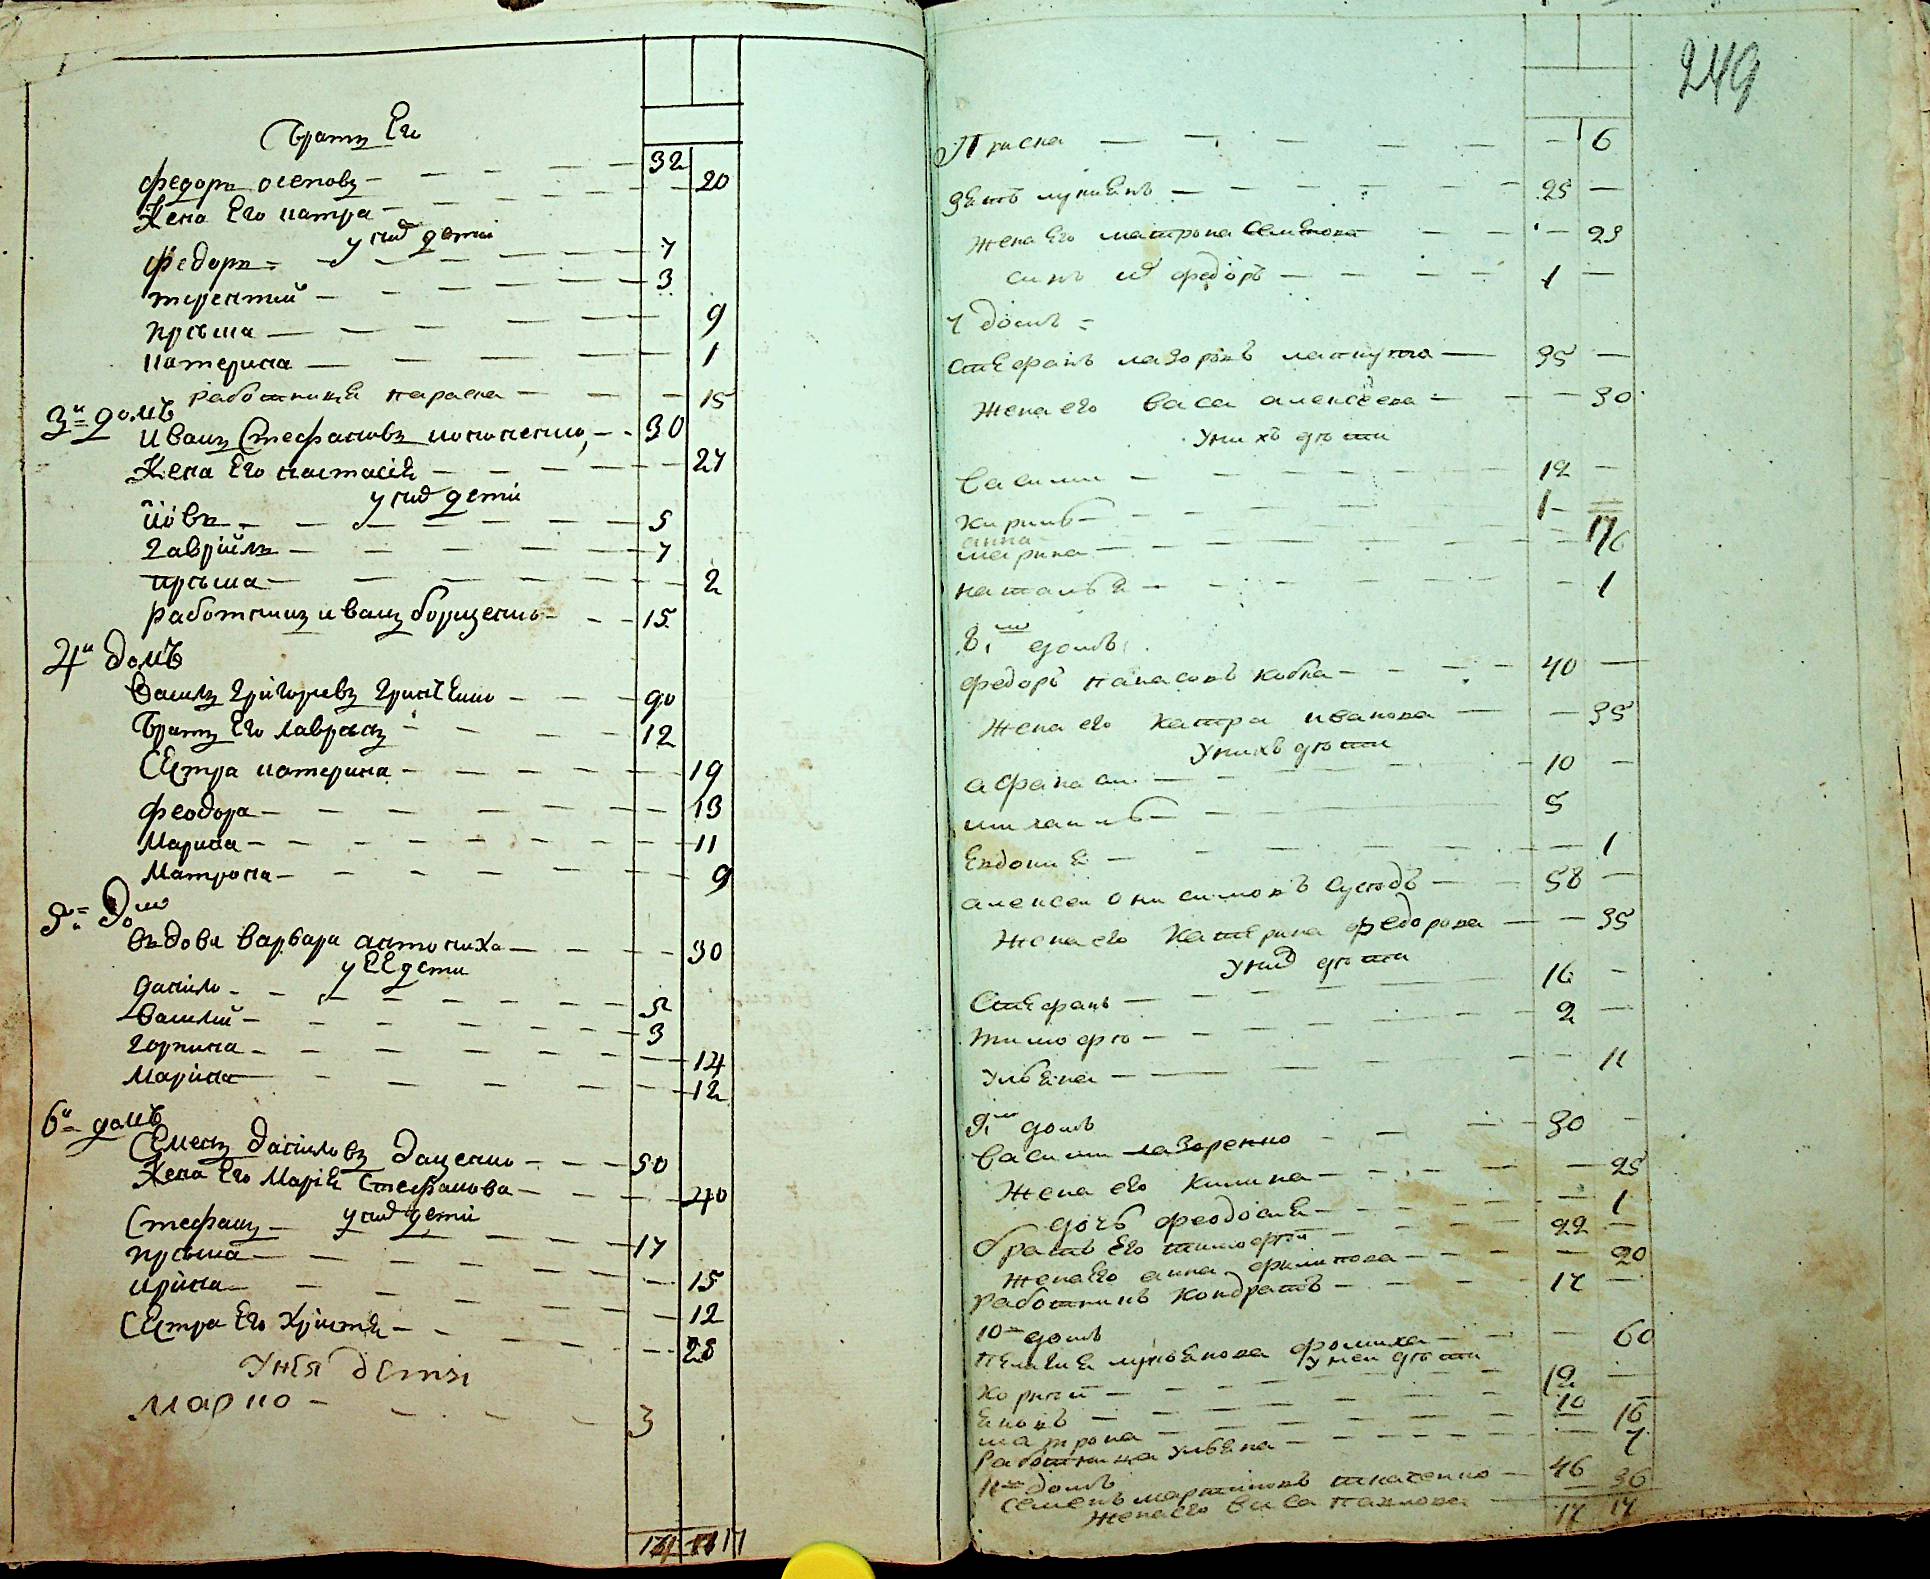 Братъ Его
Федоръ осеповъ 32
Жена Его катра 20
у них дети
Федоръ 7
терентий 3
прѣсма 9
катерина 1
Работница параска 15
3й домъ
Иванъ Стефановъ 30
Жена Его настасія 27
у них дети
Іовъ 5
Гаврійлъ 7
прѣсма 2
Работникъ иванъ борщенко 15
4й домъ
Василъ Григориевъ Гриненко 90
Братъ Его лаврѣнъ 12
Сестра катерина 19
Феодора 13
Марина 11
Матрона 9
5й Дом
вѣдова варвара антониха 30
у ЕЕ дети
данило 5
Василий 3
горпина 14
Марина 12
6й домъ
Семенъ Даниловъ Даценко 50
Жена Его Марія Стефанова 40
у них дети
Стефанъ 17
прѣсма 15
ирина 12
Сестра Его Христя 28
У нея дети
Марко 3
17
249
Приска 6
зять лукиянъ 25
жена Его матрона Семенова 23
синъ их федоръ 1
7 домъ
Стефанъ лазоровъ лапкута 35
жена его васа алексеева 30
У нихъ дѣти
василии 12
кирилъ 1
анна 17
марина 6
наталья 1
8й домъ
федоръ панасовъ кобка 40
жена его катра иванова 35
У нихъ дѣти
афанаси 10
михаилъ 5
Евдокия 1
алексеи онисимовъ Сусѣдъ 58
жена его катерина федорова 35
У них дѣти
Стефанъ 16
тимофѣ 2
Улбяна 11
9й домъ
василии лазоренко 30
жена его килина 25
дочь феодосия 1
братъ Его тимофѣй 22
жена Его анна филипова 20
работникъ кондратъ 17
10й домъ
пелагия лукьянова фомиха 60
у неи дѣти
корнѣй 12
Яковъ 10
матрона 16
Работница Улбяна 7
11й домъ
Семенъ мартиновъ ткаченко 46
жена его васа павлова 36
17 17